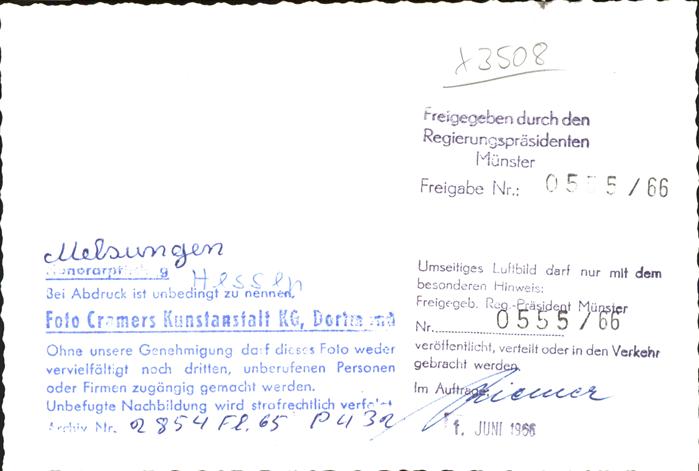 x3508
Freigegeben durch den
Regierungspräsidenten
Münster
Freigabe Nr.: 0555/66
Melsungen
Honorarpflichtig
Hessen
Bei Abdruck ist unbedingt zu nennen,
Foto Cramers Kunstanstalt KG, Dortmund
Ohne unsere Genehmigung darf dieses Foto weder
vervielfältigt noch dritten, unberufenen Personen
oder Firmen zugängig gemacht werden.
Unbefugte Nachbildung wird strafrechtlich verfolgt
Archiv Nr. 2854 Fl. 65 P 432
Umseitiges Luftbild darf nur mit dem
besonderen Hinweis:
Freigegeb. Reg.-Präsident Münster
Nr. 0555/66
veröffentlicht, verteilt oder in den Verkehr
gebracht werden
Im Auftrage
1. JUNI 1966